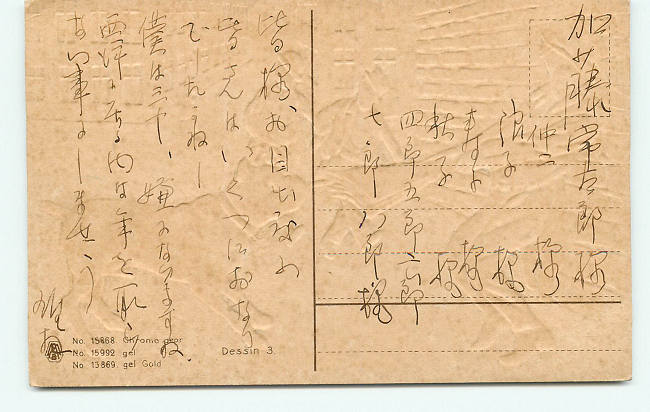 加藤常吉郎 様
仲二 様
浪子 様
様
秋子 様
四郎五郎六郎
七郎八郎様
皆様、お目出
皆さんはいくつにお
でしたかねー
僕は三十、嫌になりますね。
西洋に居る内は年を取ら
ない事にしませう
No. 15868. Chromo
No. 15992 gel
No. 13869. gel Gold
Dessin 3.